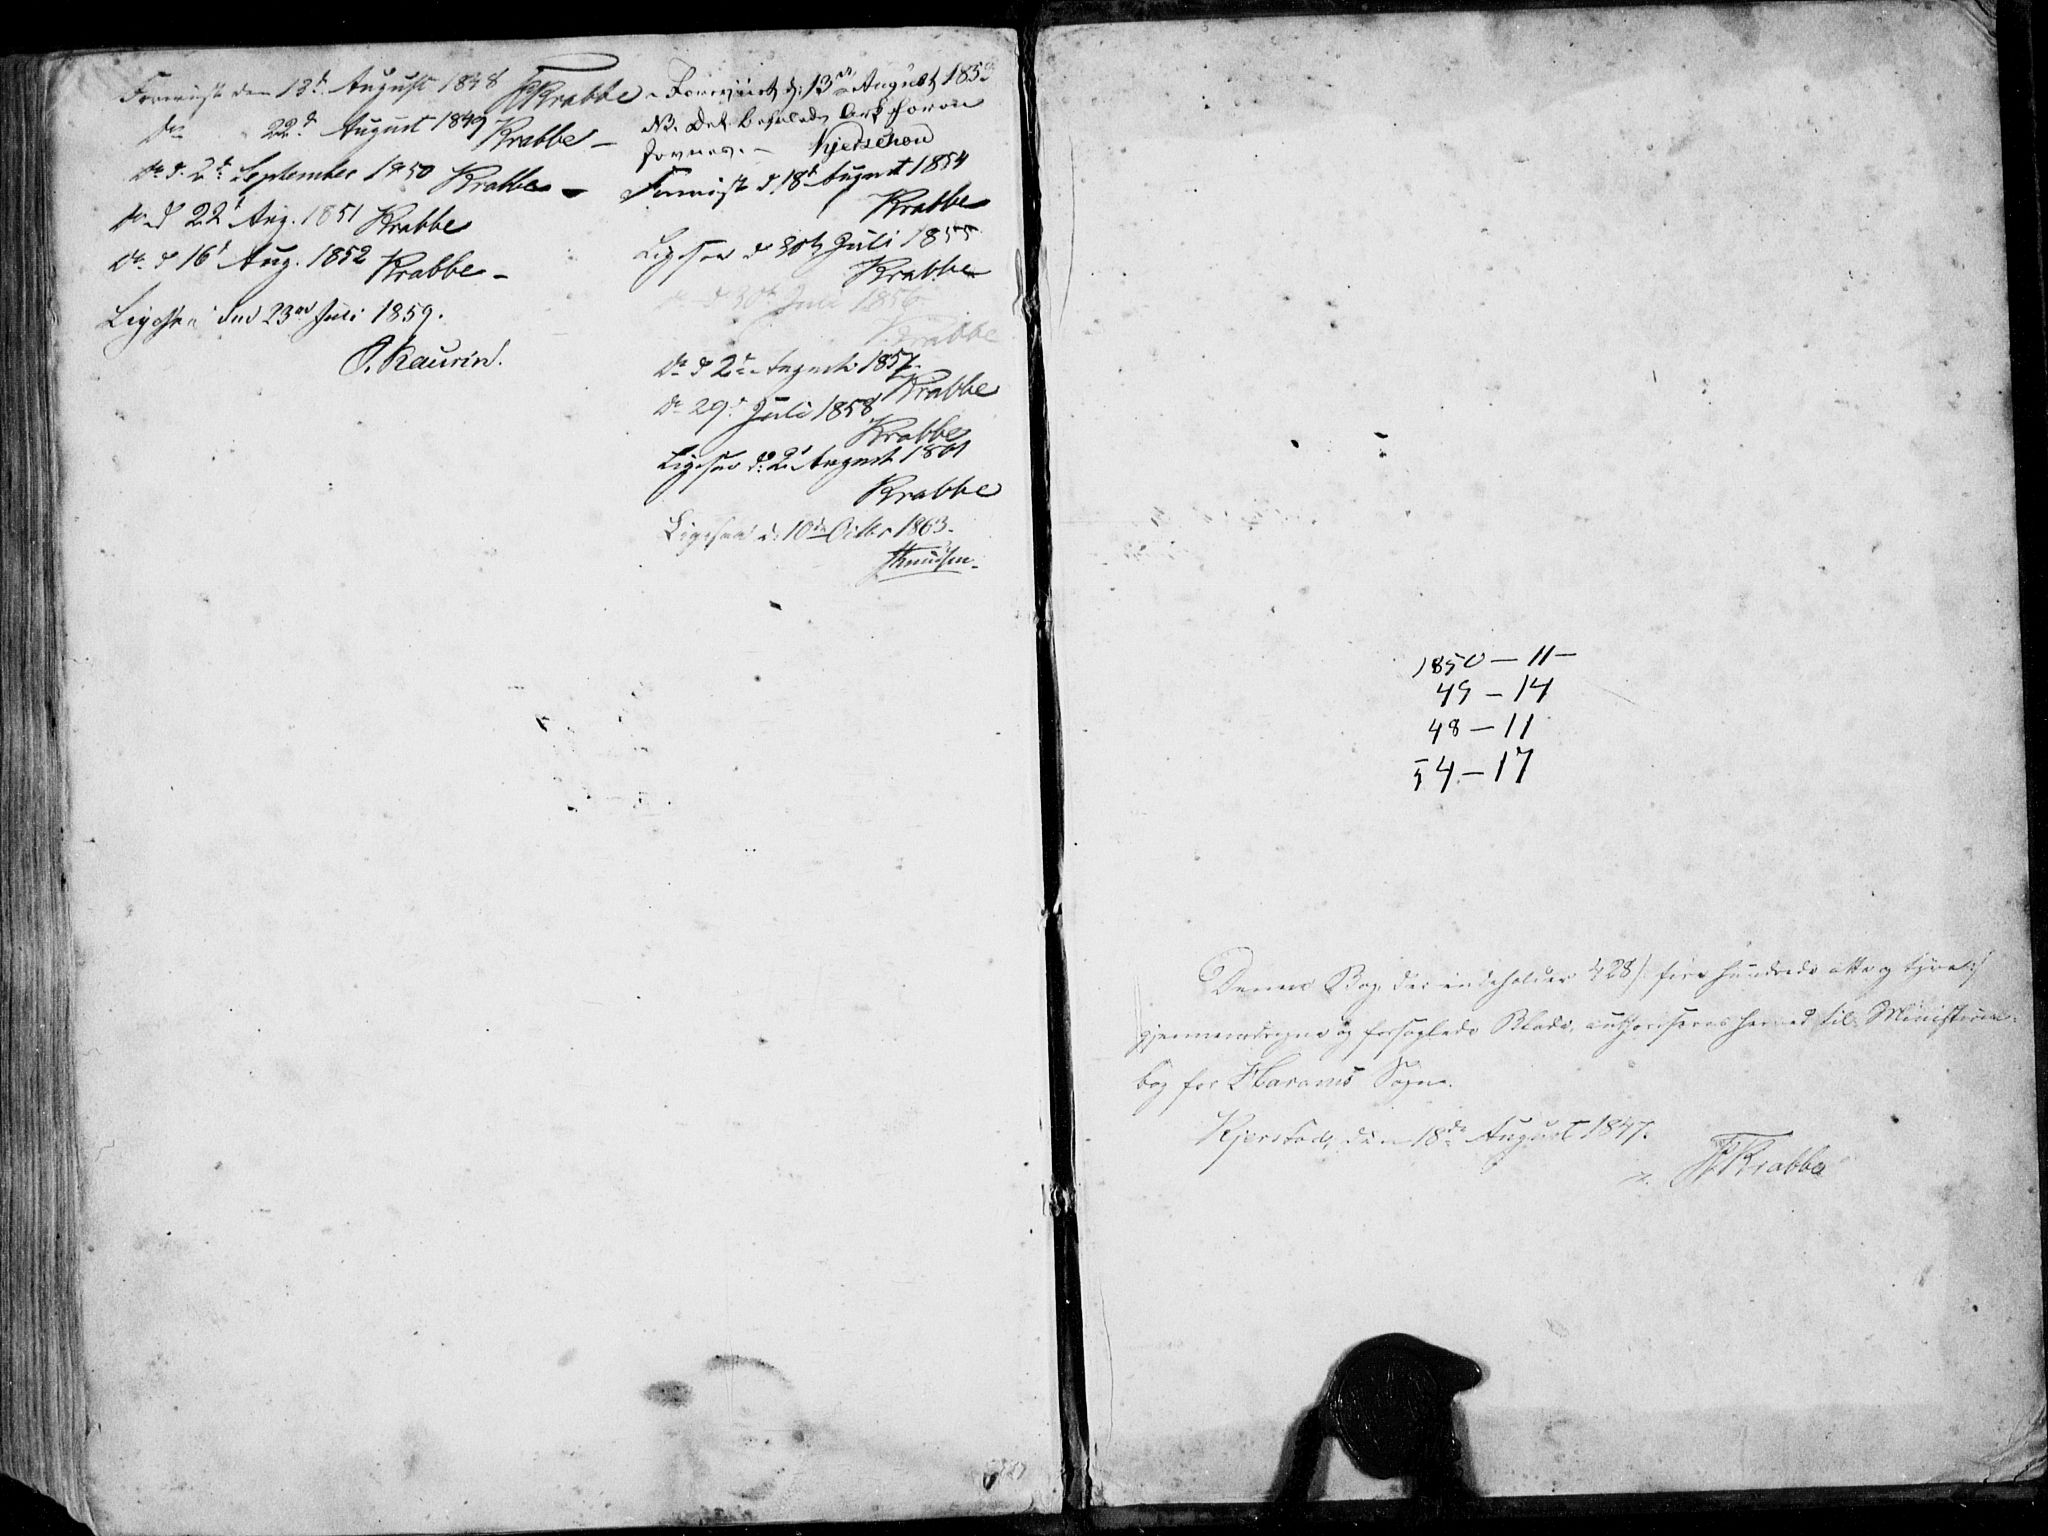 Foreviist den 13d August 1848 Krabbe
do 22d August 1849 Krabbe –
do d. 2d September 1850 Krabbe –
do d 22d Aug. 1851 Krabbe
do d 16d Aug. 1852 Krabbe –
Ligesaa den 23de Juli 1859.
Kaurin.
Foreviist d: 13de August 1853
NB. Det befalede Ark
Kjerschow
Foreviist d. 18d August 1854
Krabbe
Ligesaa d 30te Juli 1855
Krabbe
do d 30te Juli 1856
Krabbe
do d 2d August 1857.
Krabbe
do 29d Juli 1858
Krabbe
Ligesaa d. 2d August 1861
Krabbe
Ligesaa d. 10de Octbr 1863.
Knudsen.
1850 – 11 –
49 – 14
48 – 11
54 – 17
Denne Bog, der indeholder 428 /: fire hundrede otte og tyve :/
gjennemdragne og forseglede Blade, authoriseres herved til Ministerial-
bog for Harams Sogn.
Kjerstad, den 18de August 1847.
Krabbe